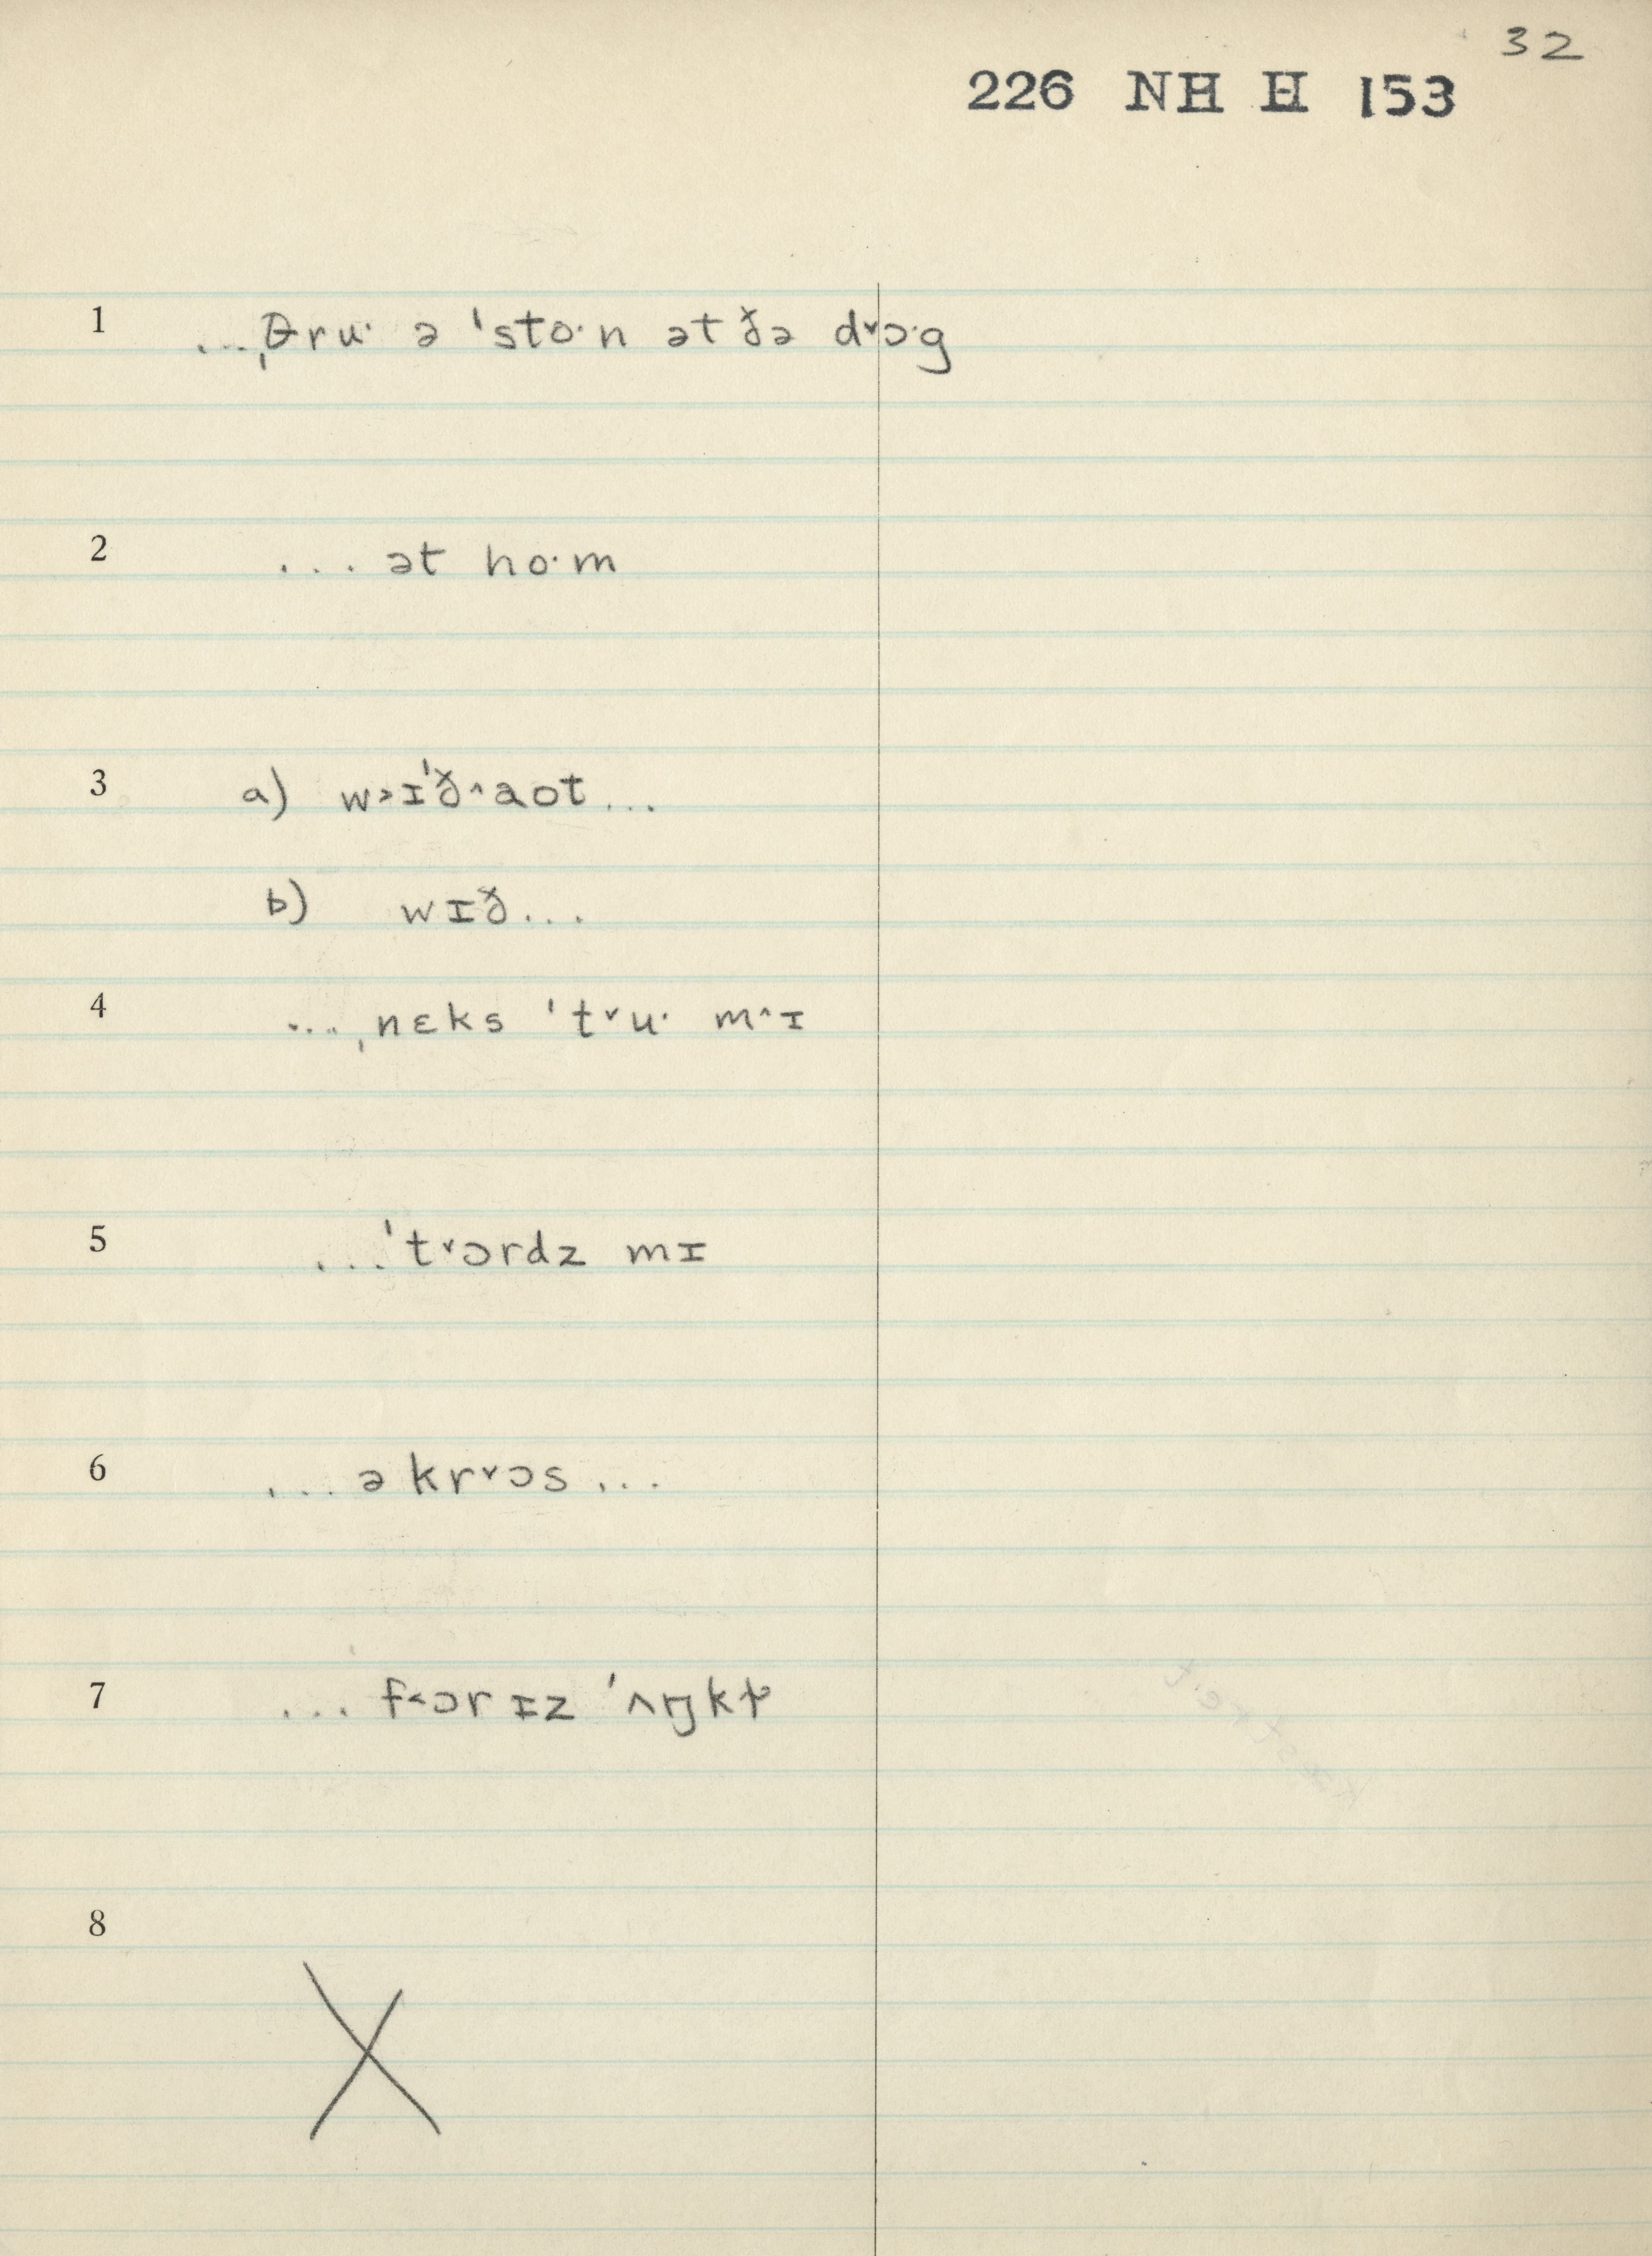 32
226 NH H 153
1 ...ˌθruˑ ə ˈstoˑn ət ðə d˅ɔˑg
2 ... ət hoˑm
3 a) w˃ɪˈð˄aot...
b) wɪð...
4 ...ˌnɛks ˈt˅uˑ m˄ɪ
5 ...ˈt˅ɔrdz mɪ
6 ...əkr˅ɔs...
7 ... f˂ɔr ɪz ˈʌŋk
8
X